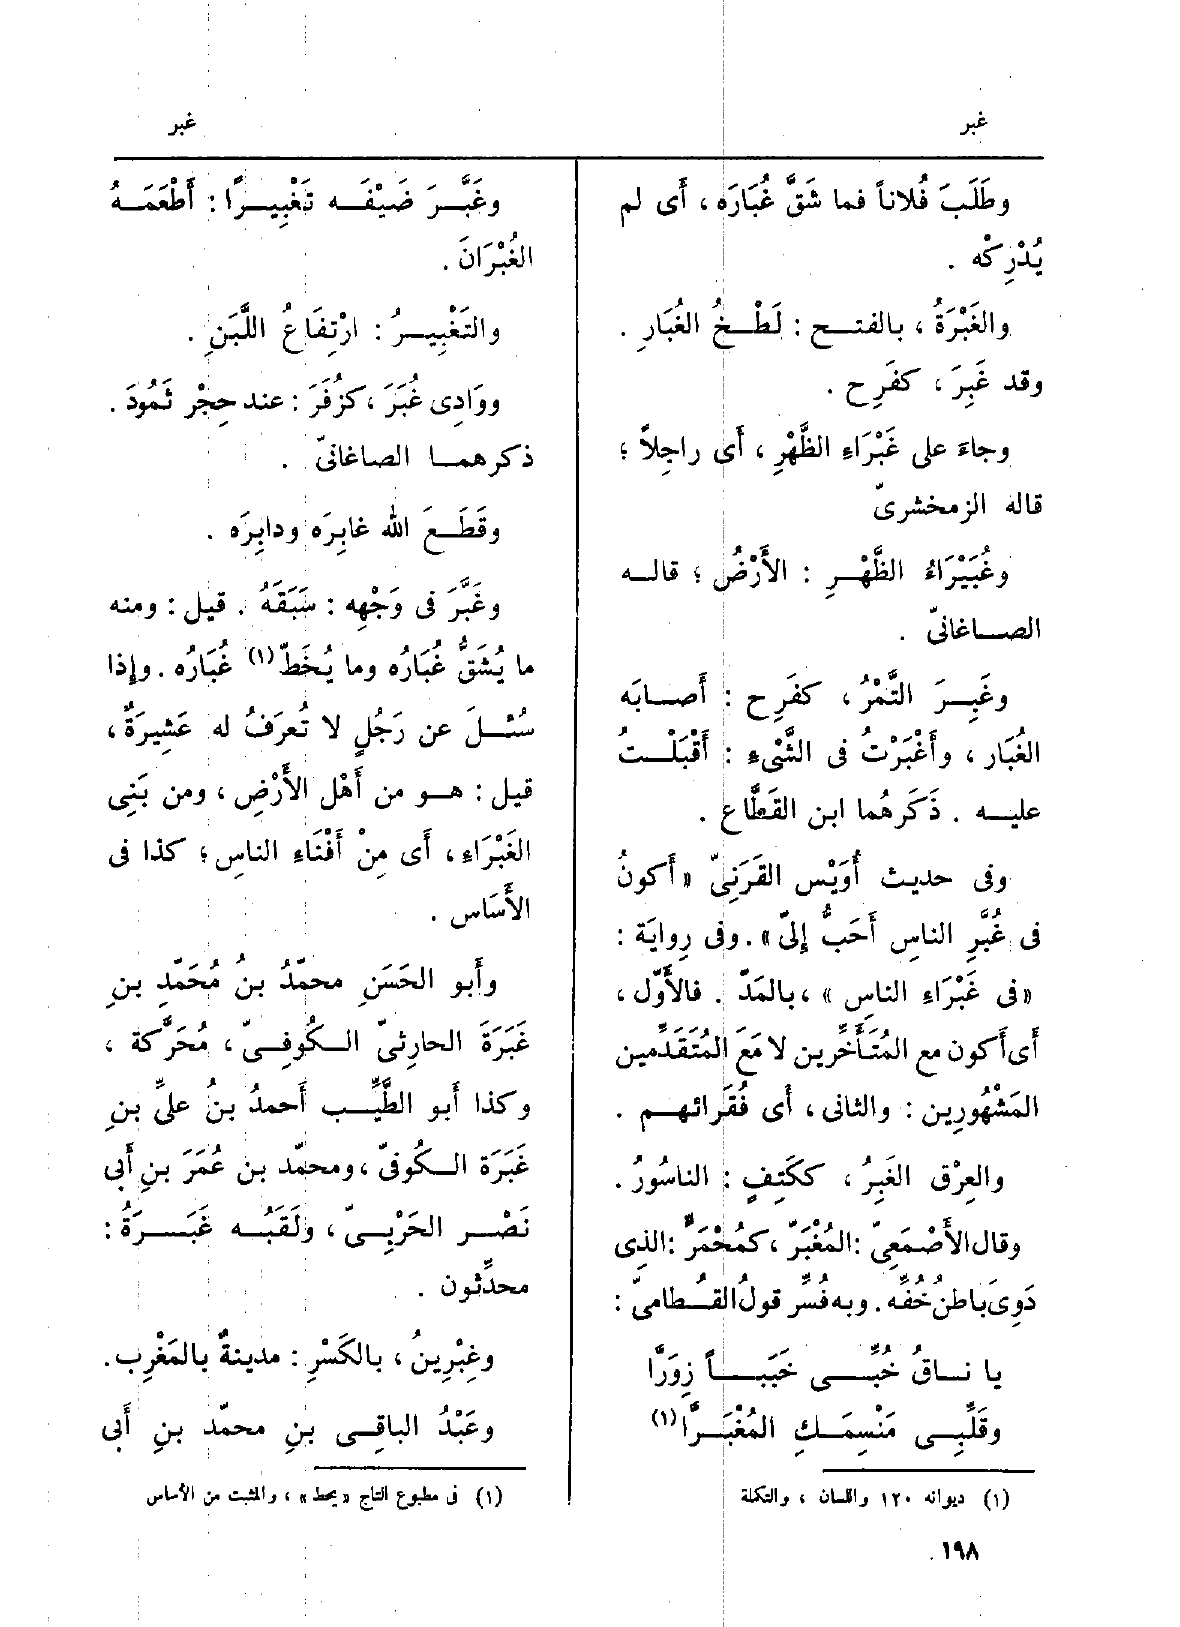 غبر
غبر
وطَلَبَ فُلاناً فما شَقَّ غُبَارَه ، أَى لم
يُدْرِكْه .
والغَبْرَةُ ، بالفتح : لَطْخُ الغُبَارِ .
وقد غَبِرَ ، كفَرِح .
وجاءَ على غَبْرَاءِ الظَّهْرِ ، أَى راجِلاً ؛
قاله الزمخشرىّ
وغُبَيْرَاءُ الظَّهْرِ : الأَرْضُ ؛ قاله
الصاغانىّ .
وغَبِرَ التَّمْرُ ، كفَرِح : أَصابَه
الغُبَار ، وأَغْبَرْتُ فى الشَّىْء : أَقْبَلْتُ
عليه . ذَكَرهُما ابن القَطَّاع .
وفى حديث أُوَيْس القَرَنِىّ «أَكونُ
فى غُبَّرِ الناسِ أَحَبُّ إِلىّ» . وفى رِوايَة :
«فى غَبْرَاءِ الناسِ» ، بالمَدّ . فالأَوّل ،
أَى أَكون مع المُتَأَخِّرين لا مَعَ المُتَقَدِّمين
المَشْهُورِين : والثانى ، أَى فُقَرائهم .
والعِرْق الغَبِرُ ، ككَتِفٍ : الناسُورُ .
وقال الأَصْمَعِىّ : المُغْبَرّ ، كمُحْمَرٍّ : الذى
دَوِىَ باطنُ خُفِّه . وبه فُسِّر قولُ القُطامىّ :
يا ناقُ خُبِّى خَبَباً زِوَرَّا
وقَلِّبِى مَنْسِمَكِ المُغْبَرَّا (١)
(١) ديوانه ١٢٠ واللسان ، والتكملة
وغَبَّرَ ضَيْفَه تَغْبِيرًا : أَطْعَمَهُ
الغُبْرَانَ .
والتَغْبِيرُ : ارْتِفَاعُ اللَّبَنِ .
ووَادِى غُبَرَ ، كزُفَرَ : عند حِجْر ثَمُودَ .
ذكرهما الصاغانىّ .
وقَطَعَ الله غابِرَه ودابِرَه .
وغَبَّرَ فى وَجْهِه : سَبَقَهُ . قيل : ومنه
ما يُشَقُّ غُبَارُه وما يُخَطّ (١) غُبَارُه . وإِذا
سُئلَ عن رَجُلٍ لا تُعرَفُ له عَشِيرَةٌ ،
قيل : هو من أَهْل الأَرْضِ ، ومن بَنِى
الغَبْرَاءِ ، أَى مِنْ أَفْنَاءِ الناسِ ؛ كذا فى
الأَسَاس .
وأَبو الحَسَنِ محمّدُ بنُ مُحَمّدِ بنِ
غَبَرَةَ الحارثىّ الكُوفىّ ، مُحَرَّكة ،
وكذا أَبو الطَّيِّب أَحمدُ بنُ علىِّ بنِ
غَبَرَة الكُوفىّ ، ومحمّد بن عُمَرَ بنِ أَبى
نَصْر الحَرْبِىّ ، ولَقَبُه غَبَرَةُ :
محدِّثون .
وغِبْرِينُ ، بالكَسْرِ : مدينةٌ بالمَغْرِب .
وعَبْدُ الباقِى بنِ محمّد بنِ أَبى
(١) فى مطبوع التاج «يحط» ، والمثبت من الأساس
١٩٨